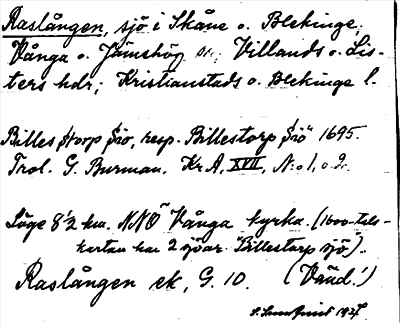 Raslången, sjö i Skåne o. Blekinge;
Vånga o. Jämshög sn; Villands o. Lis-
ters hdr; Kristianstads o. Blekinge l.
Billes torp Siö, resp. Billestorp Siö" 1695.
Trol. G. Burman. Kr. A, XVII, N:o 1, o. 2.
Läge 8½ km. NNÖ Vånga kyrka. (1600-tals-
kartan har 2 sjöar "Billestorp sjö").
Raslången ek, G. 10. (Vänd!)
1927.